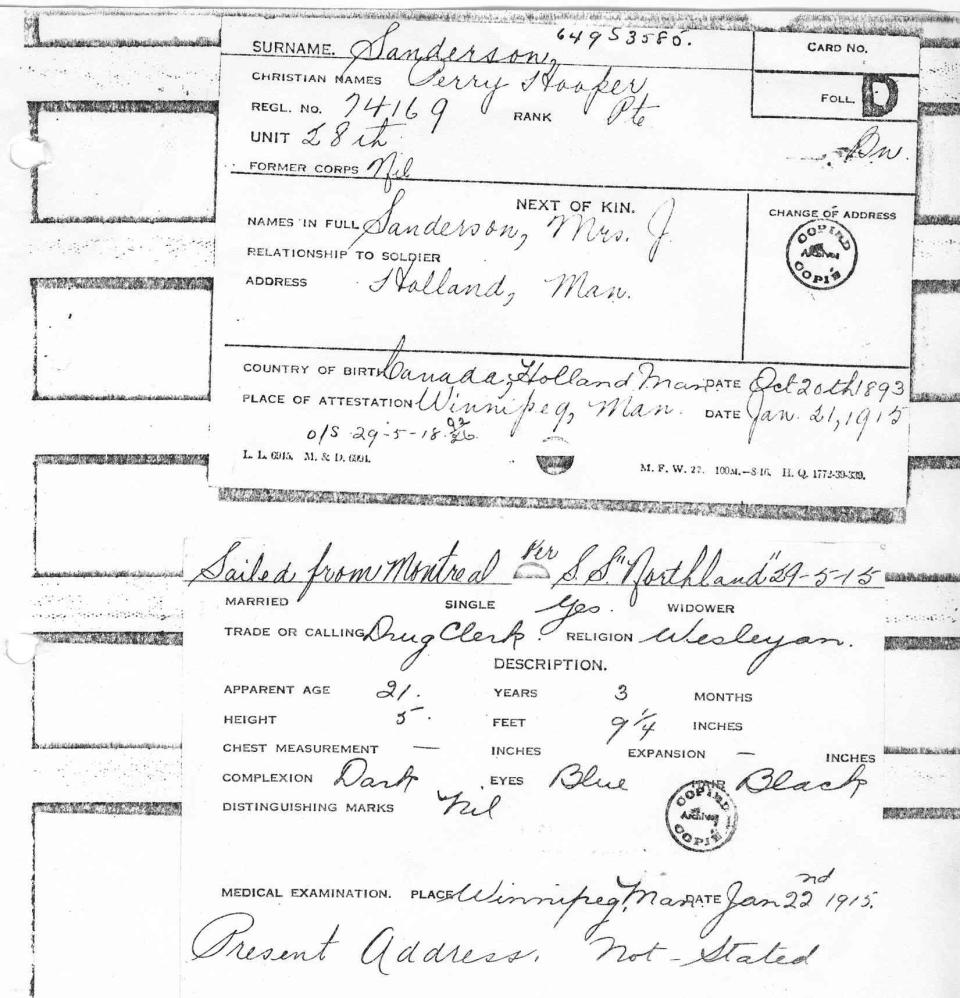 64953585.
SURNAME. Sanderson, CARD NO.
CHRISTIAN NAMES Perry Hooper
FOLL. D
REGL. NO. 74169 RANK Pte
UNIT 28th Bn.
FORMER CORPS Nil
NEXT OF KIN. CHANGE OF ADDRESS
NAMES IN FULL Sanderson, Mrs. J.
RELATIONSHIP TO SOLDIER
ADDRESS Holland, Man.
COPIED
COPIÉ
COUNTRY OF BIRTH Canada, Holland Man DATE Oct 20th 1893
PLACE OF ATTESTATION Winnipeg, Man. DATE Jan. 21, 1915
O/S 29-5-18
L. L. 6945. M. & D. 6994. M. F. W. 22. 100M.—8-16. H. Q. 1772-39-339.
Sailed from Montreal Per S.S. "Northland" 29-5-15
MARRIED SINGLE Yes. WIDOWER
TRADE OR CALLING Drug Clerk. RELIGION Wesleyan.
DESCRIPTION.
APPARENT AGE 21. YEARS 3 MONTHS
HEIGHT 5. FEET 9 1/4 INCHES
CHEST MEASUREMENT — INCHES EXPANSION — INCHES
COMPLEXION Dark EYES Blue HAIR Black
DISTINGUISHING MARKS Nil
COPIED
Archives
COPIÉ
MEDICAL EXAMINATION. PLACE Winnipeg, Man DATE Jan 22nd 1915.
Present Address. Not-Stated